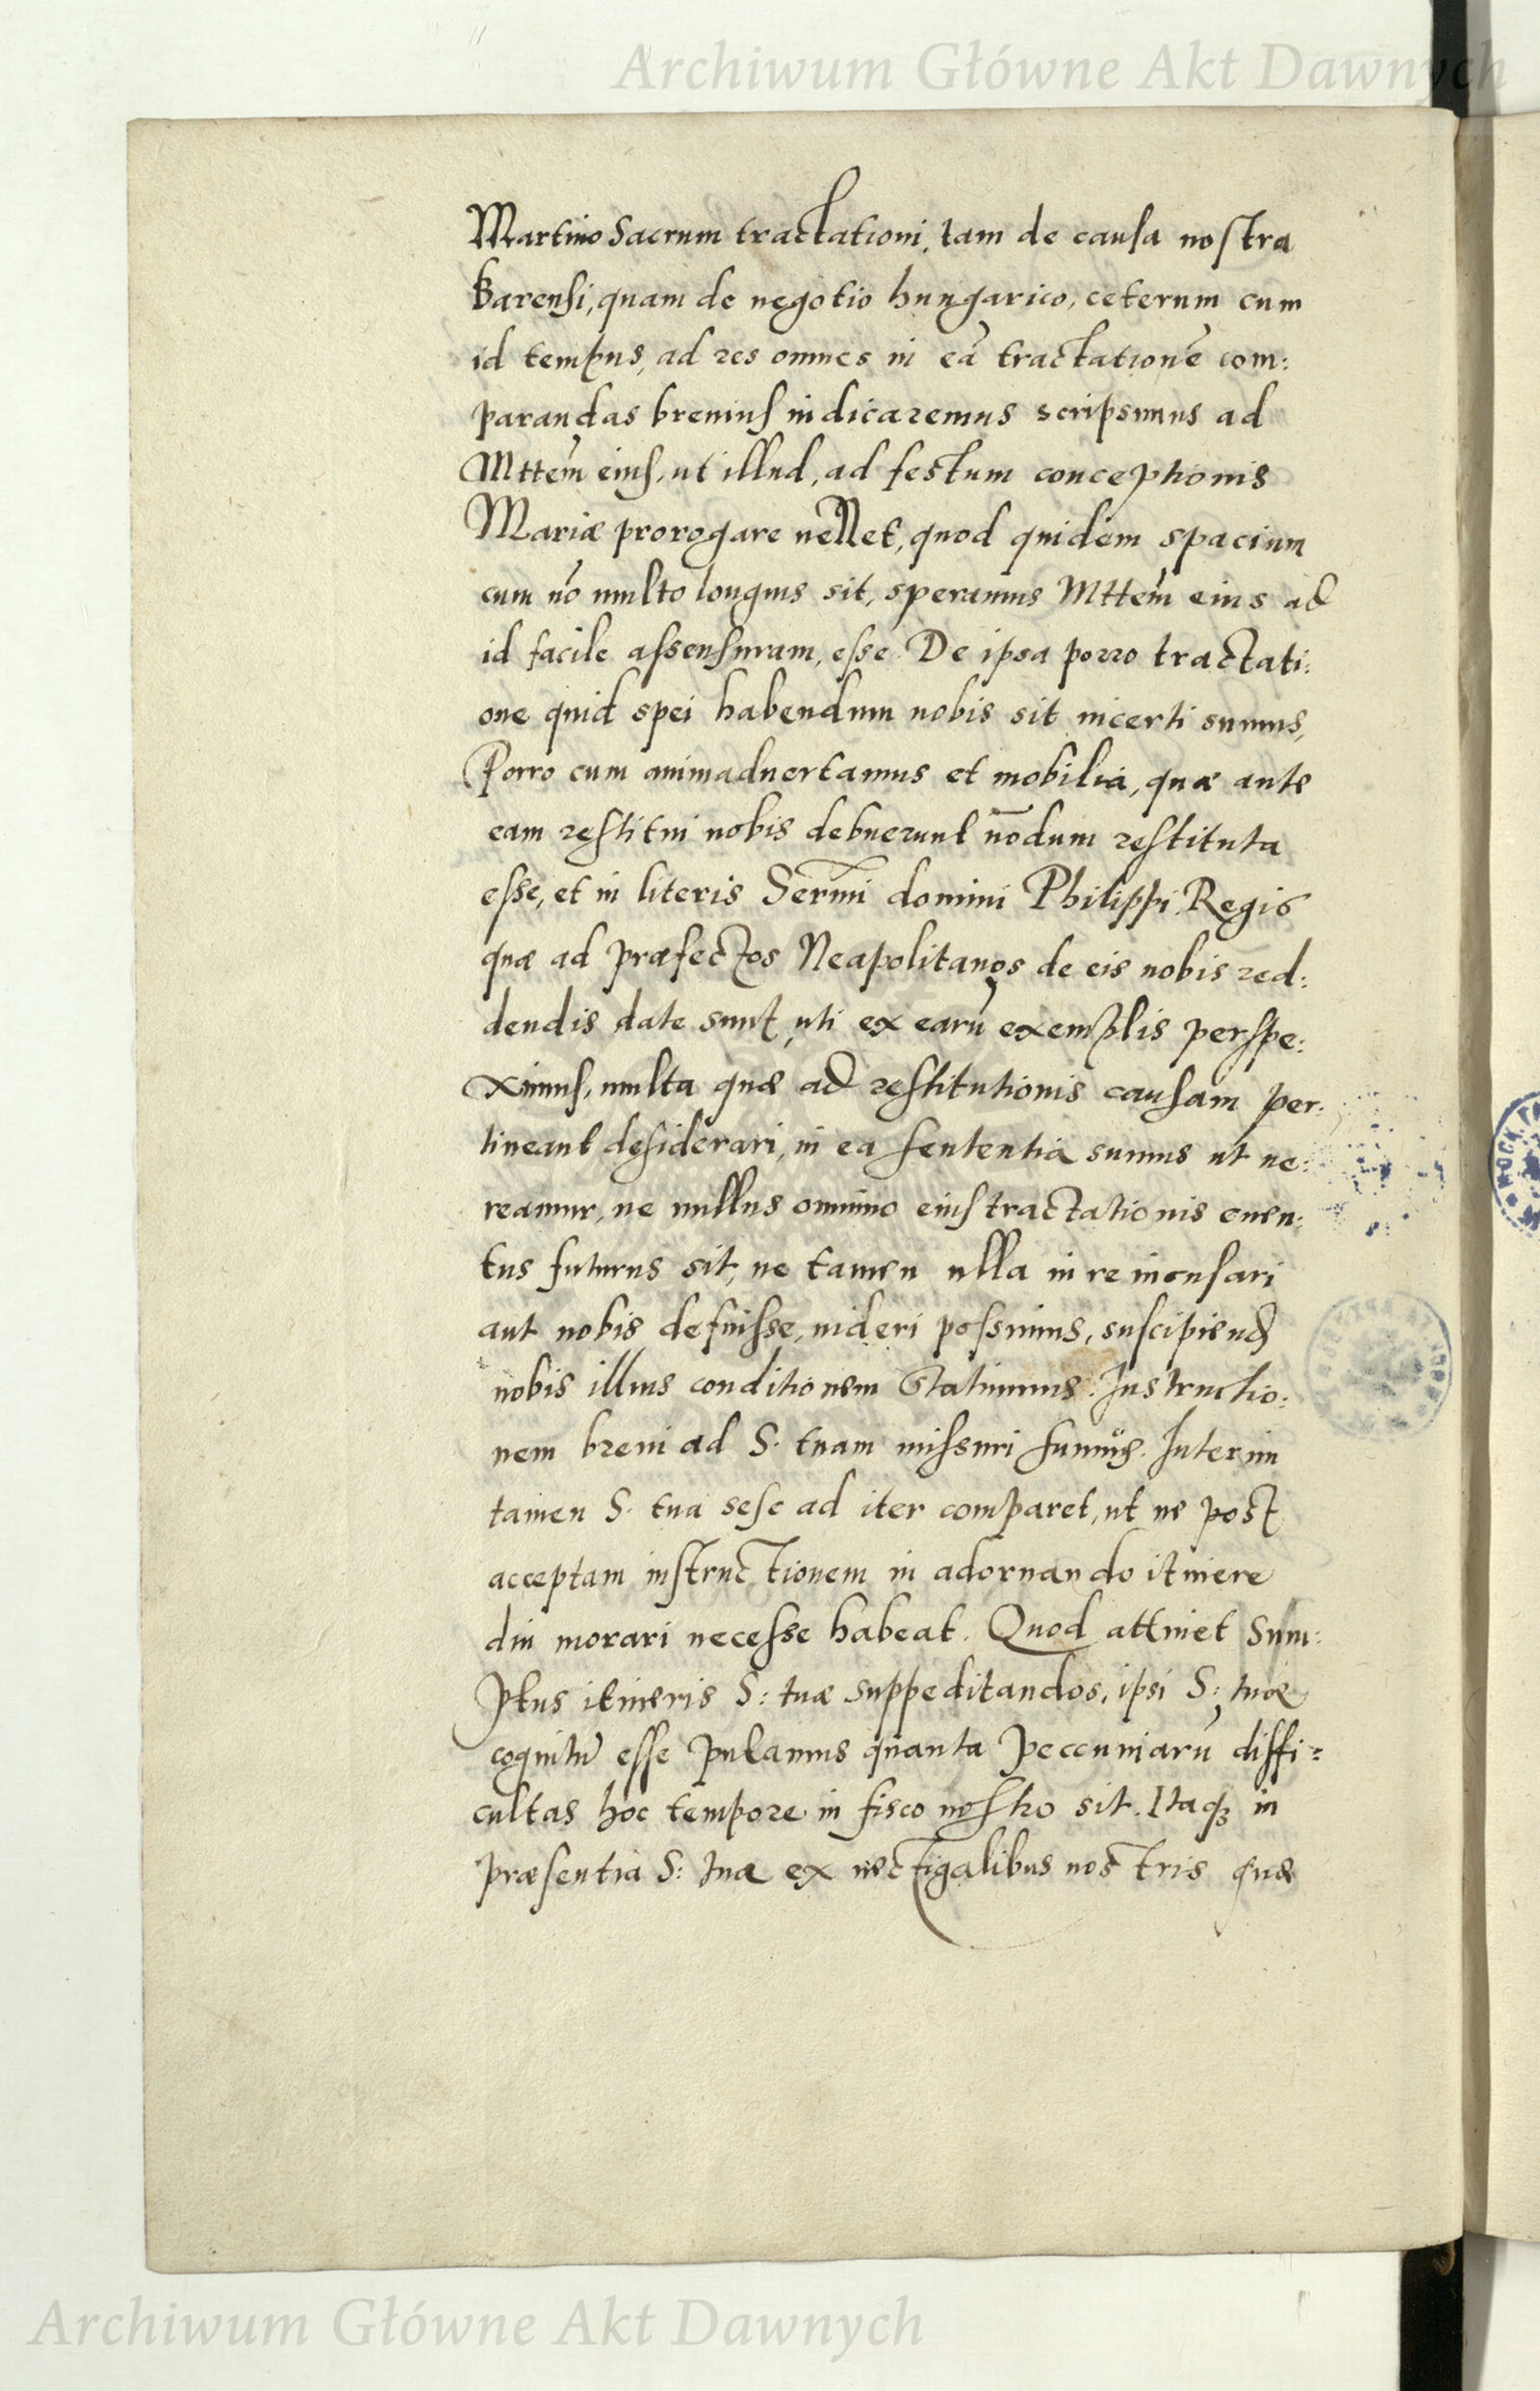 Archiwum Główne Akt Dawnych
Martino Sacrum tractationi, tam de causa nostra
Barensi, quam de negotio hungarico, ceterum cum
id tempus, ad res omnes in eā tractationē com:
parandas brevius iudicaremus scripsimus ad
Mttem̃ eius, ut illud, ad festum conceptionis
Mariæ prorogare vellet, quod quidem spacium
cum nō multo longius sit, speramus Mttem̃ eius ad
id facile assensuram, esse. De ipsa porro tractati:
one quid spei habendum nobis sit incerti sumus,
Porro cum animadvertamus et mobilia, quæ ante
eam restitui nobis debuerunt nōdum restituta
esse, et in literis Serm̃i domini Philippi Regis
quæ ad præfectos Neapolitanos de eis nobis red:
dendis date sunt, uti ex earū exemplis perspe:
ximus, multa quæ ad restitutionis causam per:
tineant desiderari, in ea sententia sumus ut ve:
reamur, ne nullus omnino eius tractationis even:
tus futurus sit, ne tamen ulla in re incusari
aut nobis defuisse, videri possimus, suscipiend
nobis illius conditionem statuimus. Instructio:
nem brevi ad S. tuam missuri sumus. Interim
tamen S. tua sese ad iter comparet, ut ne post
acceptam instructionem in adornando itinere
diu morari necesse habeat. Quod attinet Sum:
ptus itineris S: tuæ suppeditandos, ipsi S: tuæ
cognitū esse putamus quanta peccuniarū diffi:
cultas hoc tempore in fisco nostro sit. Itaqꝫ in
præsentia S: tuæ ex vectigalibus nostris quæ
Archiwum Główne Akt Dawnych